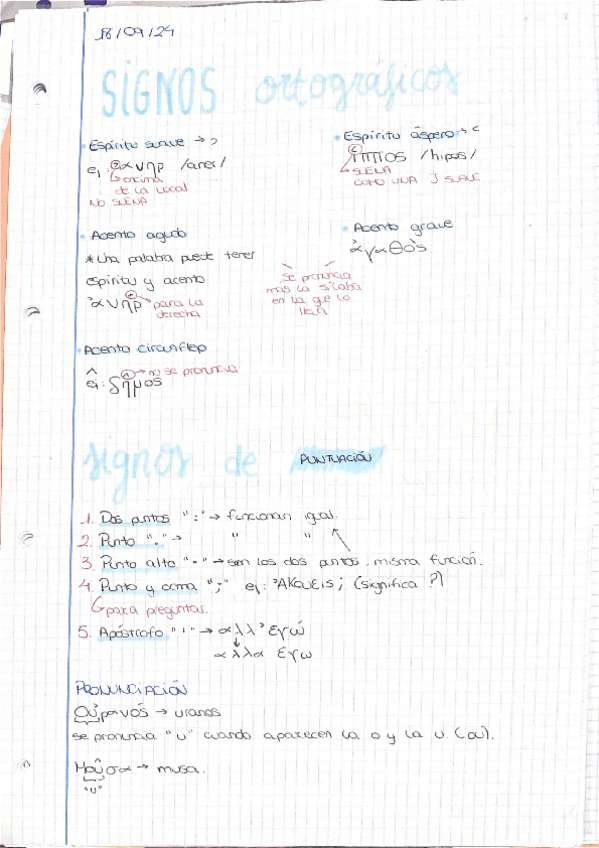 18/09/24
SIGNOS ortográficos
• Espíritu suave → ʾ
ej: ἀνηρ /aner/
↳ encima
de la vocal
NO SUENA
• Espíritu áspero → ʿ
ἱππος /hipos/
↳ SUENA
COMO UNA J SUAVE
• Acento agudo
* Una palabra puede tener
espíritu y acento
ἀνήρ → para la
derecha
• Acento grave
ἀγαθὸς
Se pronuncia
más la sílaba
en la que lo
llevan
• Acento circunflejo
^
ej: δῆμος → no se pronuncia
signos de PUNTUACIÓN
1. Dos puntos ":" → funcionan igual.
2. Punto "." → " "
3. Punto alto "·" → son los dos puntos, misma función.
4. Punto y coma ";" ej: ἈΚΟΥΕΙΣ; (significa ?)
↳ para preguntar.
5. Apóstrofo "'" → αλλ' ἐγώ
αλλα ἐγω
PRONUNCIACIÓN
Οὐρανός → uranos
se pronuncia "u" cuando aparecen la o y la u (ου).
Μοῦσα → musa.
"u"